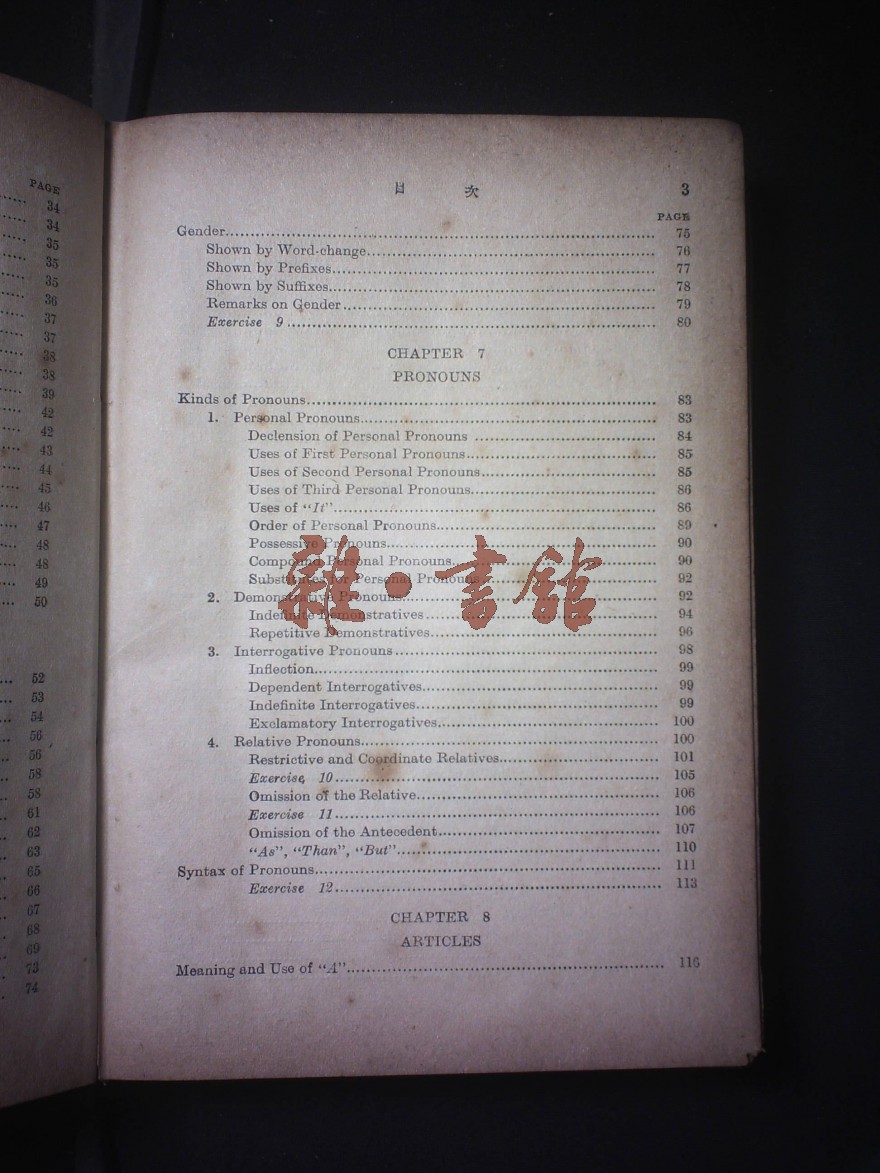 PAGE
34
34
35
35
35
36
37
37
38
38
39
42
42
43
44
45
46
47
48
48
49
50
52
53
54
56
56
58
58
61
62
63
65
66
67
68
69
73
74
目 次 3
PAGE
Gender 75
Shown by Word-change 76
Shown by Prefixes 77
Shown by Suffixes 78
Remarks on Gender 79
Exercise 9 80
CHAPTER 7
PRONOUNS
Kinds of Pronouns 83
1. Personal Pronouns 83
Declension of Personal Pronouns 84
Uses of First Personal Pronouns 85
Uses of Second Personal Pronouns 85
Uses of Third Personal Pronouns 86
Uses of “It” 86
Order of Personal Pronouns 89
Possessive Pronouns 90
Compound Personal Pronouns 90
Substitutes for Personal Pronouns 92
2. Demonstrative Pronouns 92
Indefinite Demonstratives 94
Repetitive Demonstratives 96
3. Interrogative Pronouns 98
Inflection 99
Dependent Interrogatives 99
Indefinite Interrogatives 99
Exclamatory Interrogatives 100
4. Relative Pronouns 100
Restrictive and Coordinate Relatives 101
Exercise 10 105
Omission of the Relative 106
Exercise 11 106
Omission of the Antecedent 107
“As”, “Than”, “But” 110
Syntax of Pronouns 111
Exercise 12 113
CHAPTER 8
ARTICLES
Meaning and Use of “A” 116
雜·書館